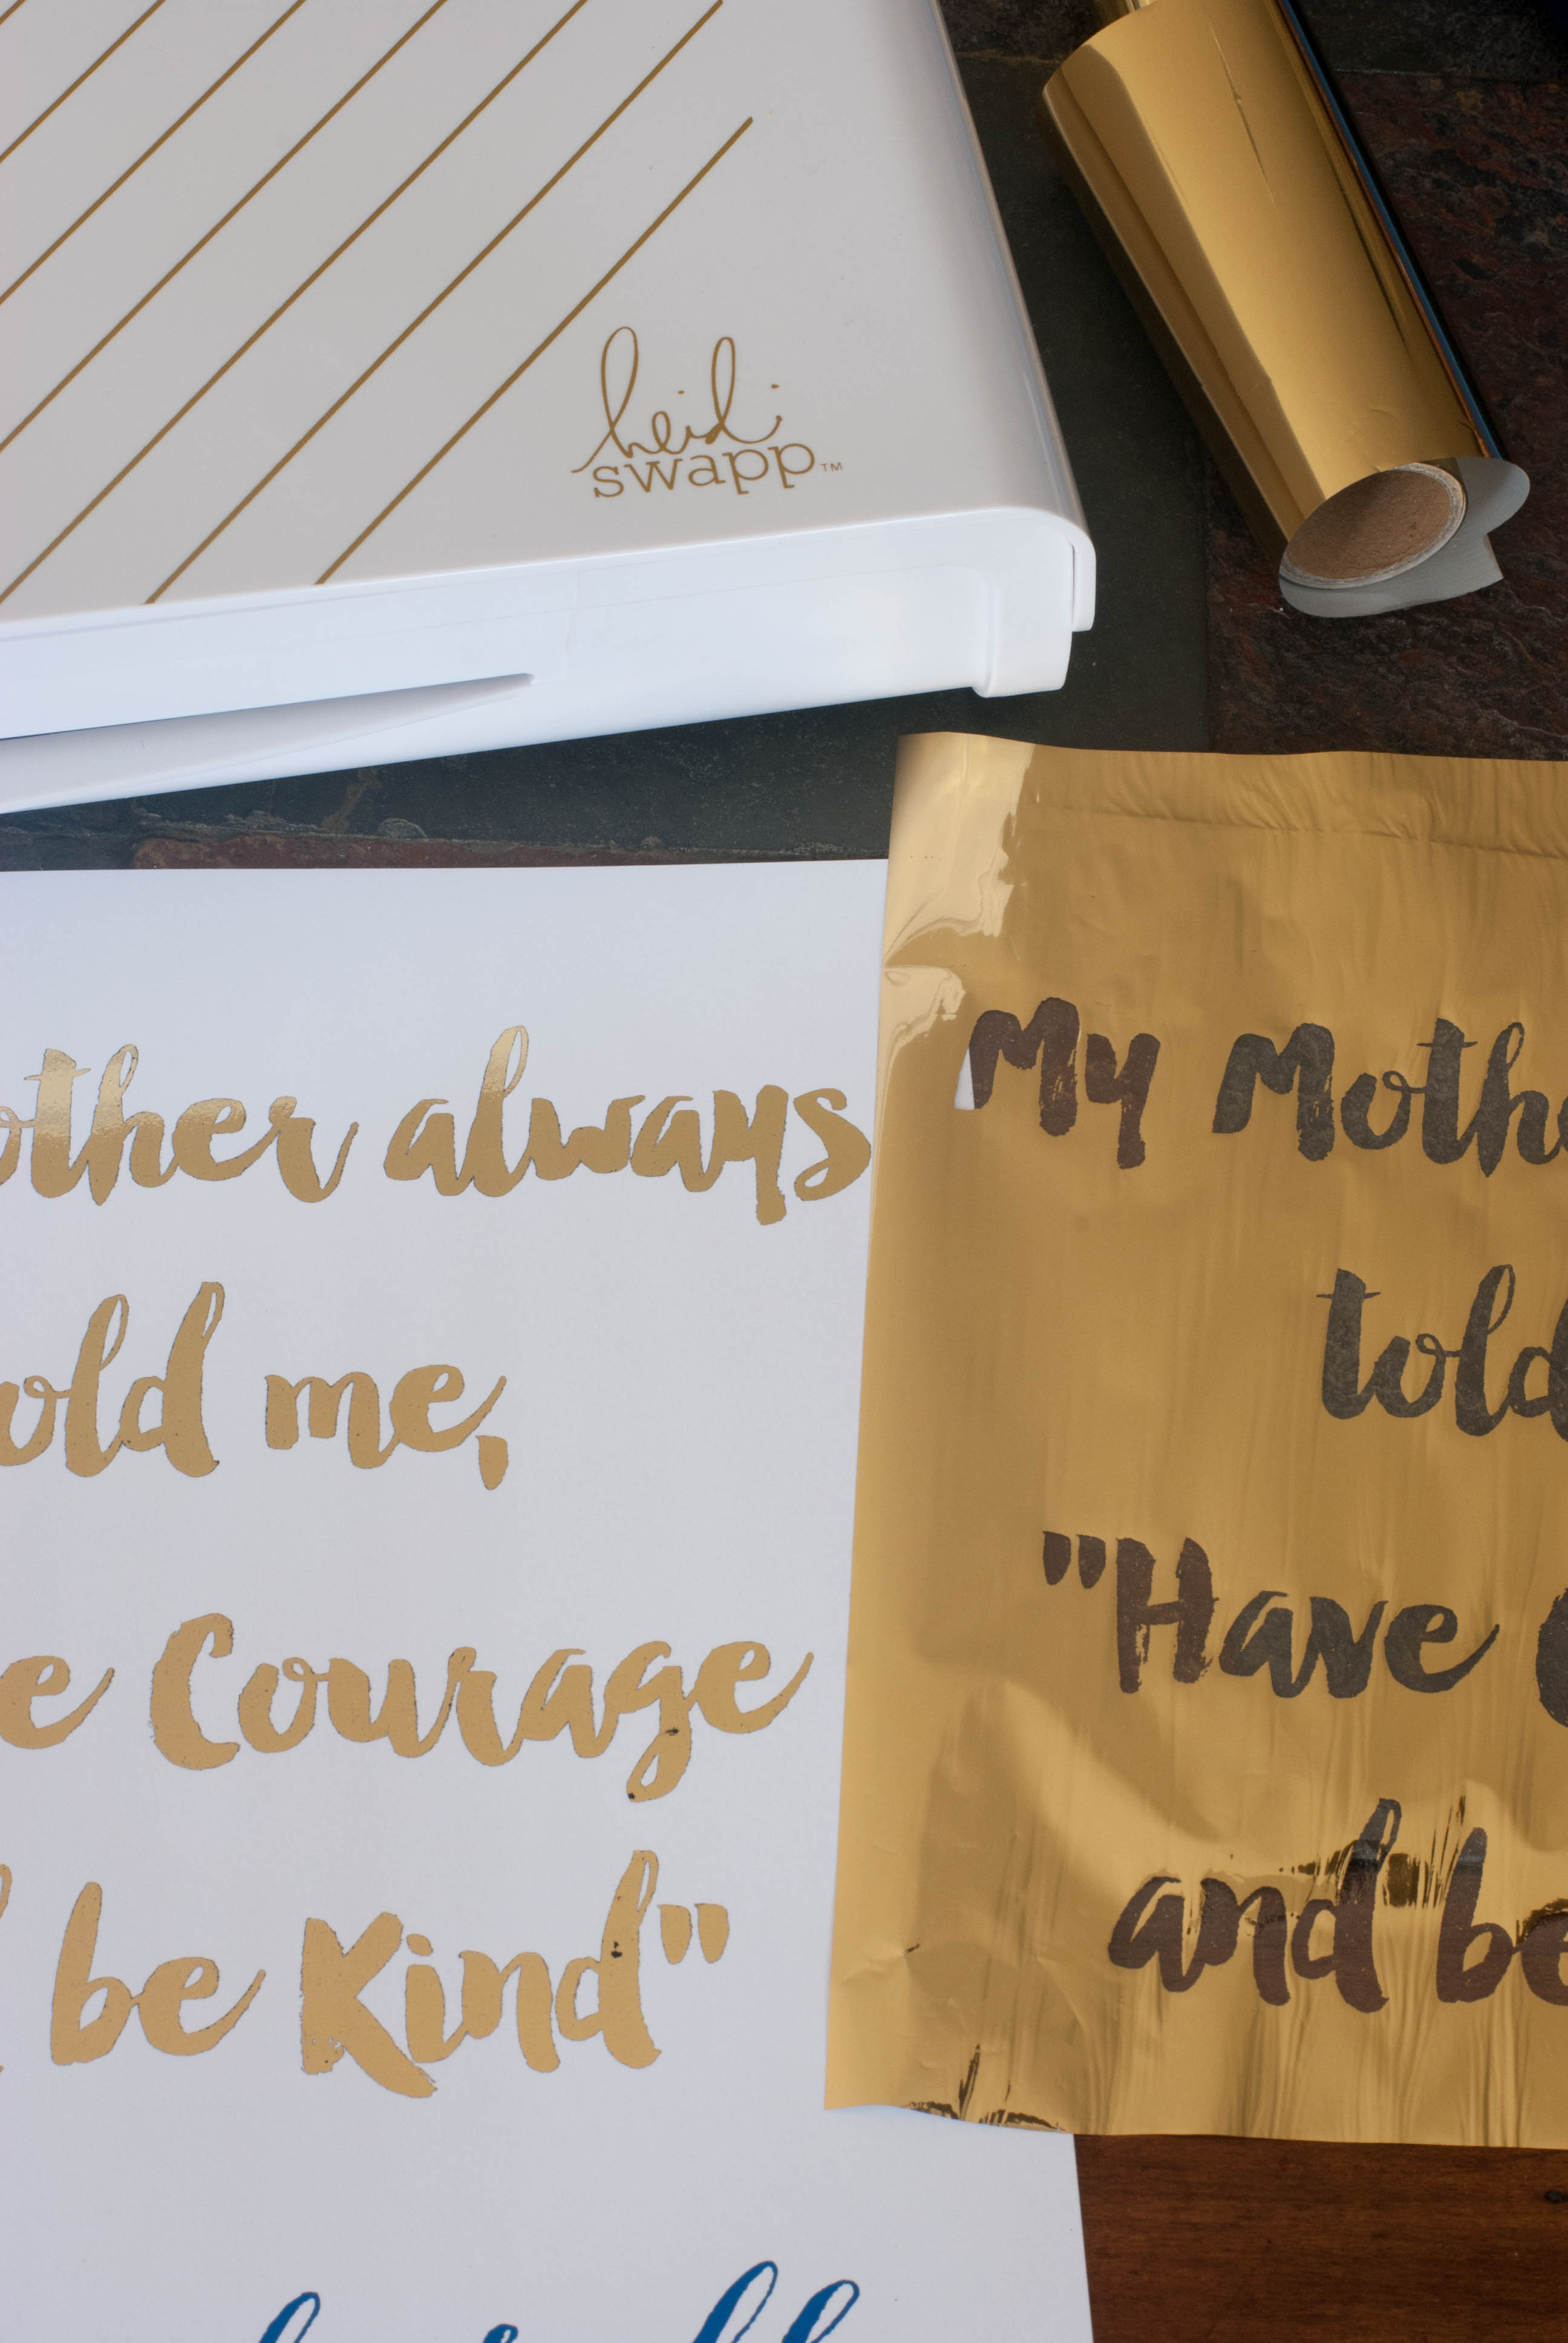 heidi
swapp™
other always
old me,
e Courage
be Kind"
My Moth
told
"Have
and be